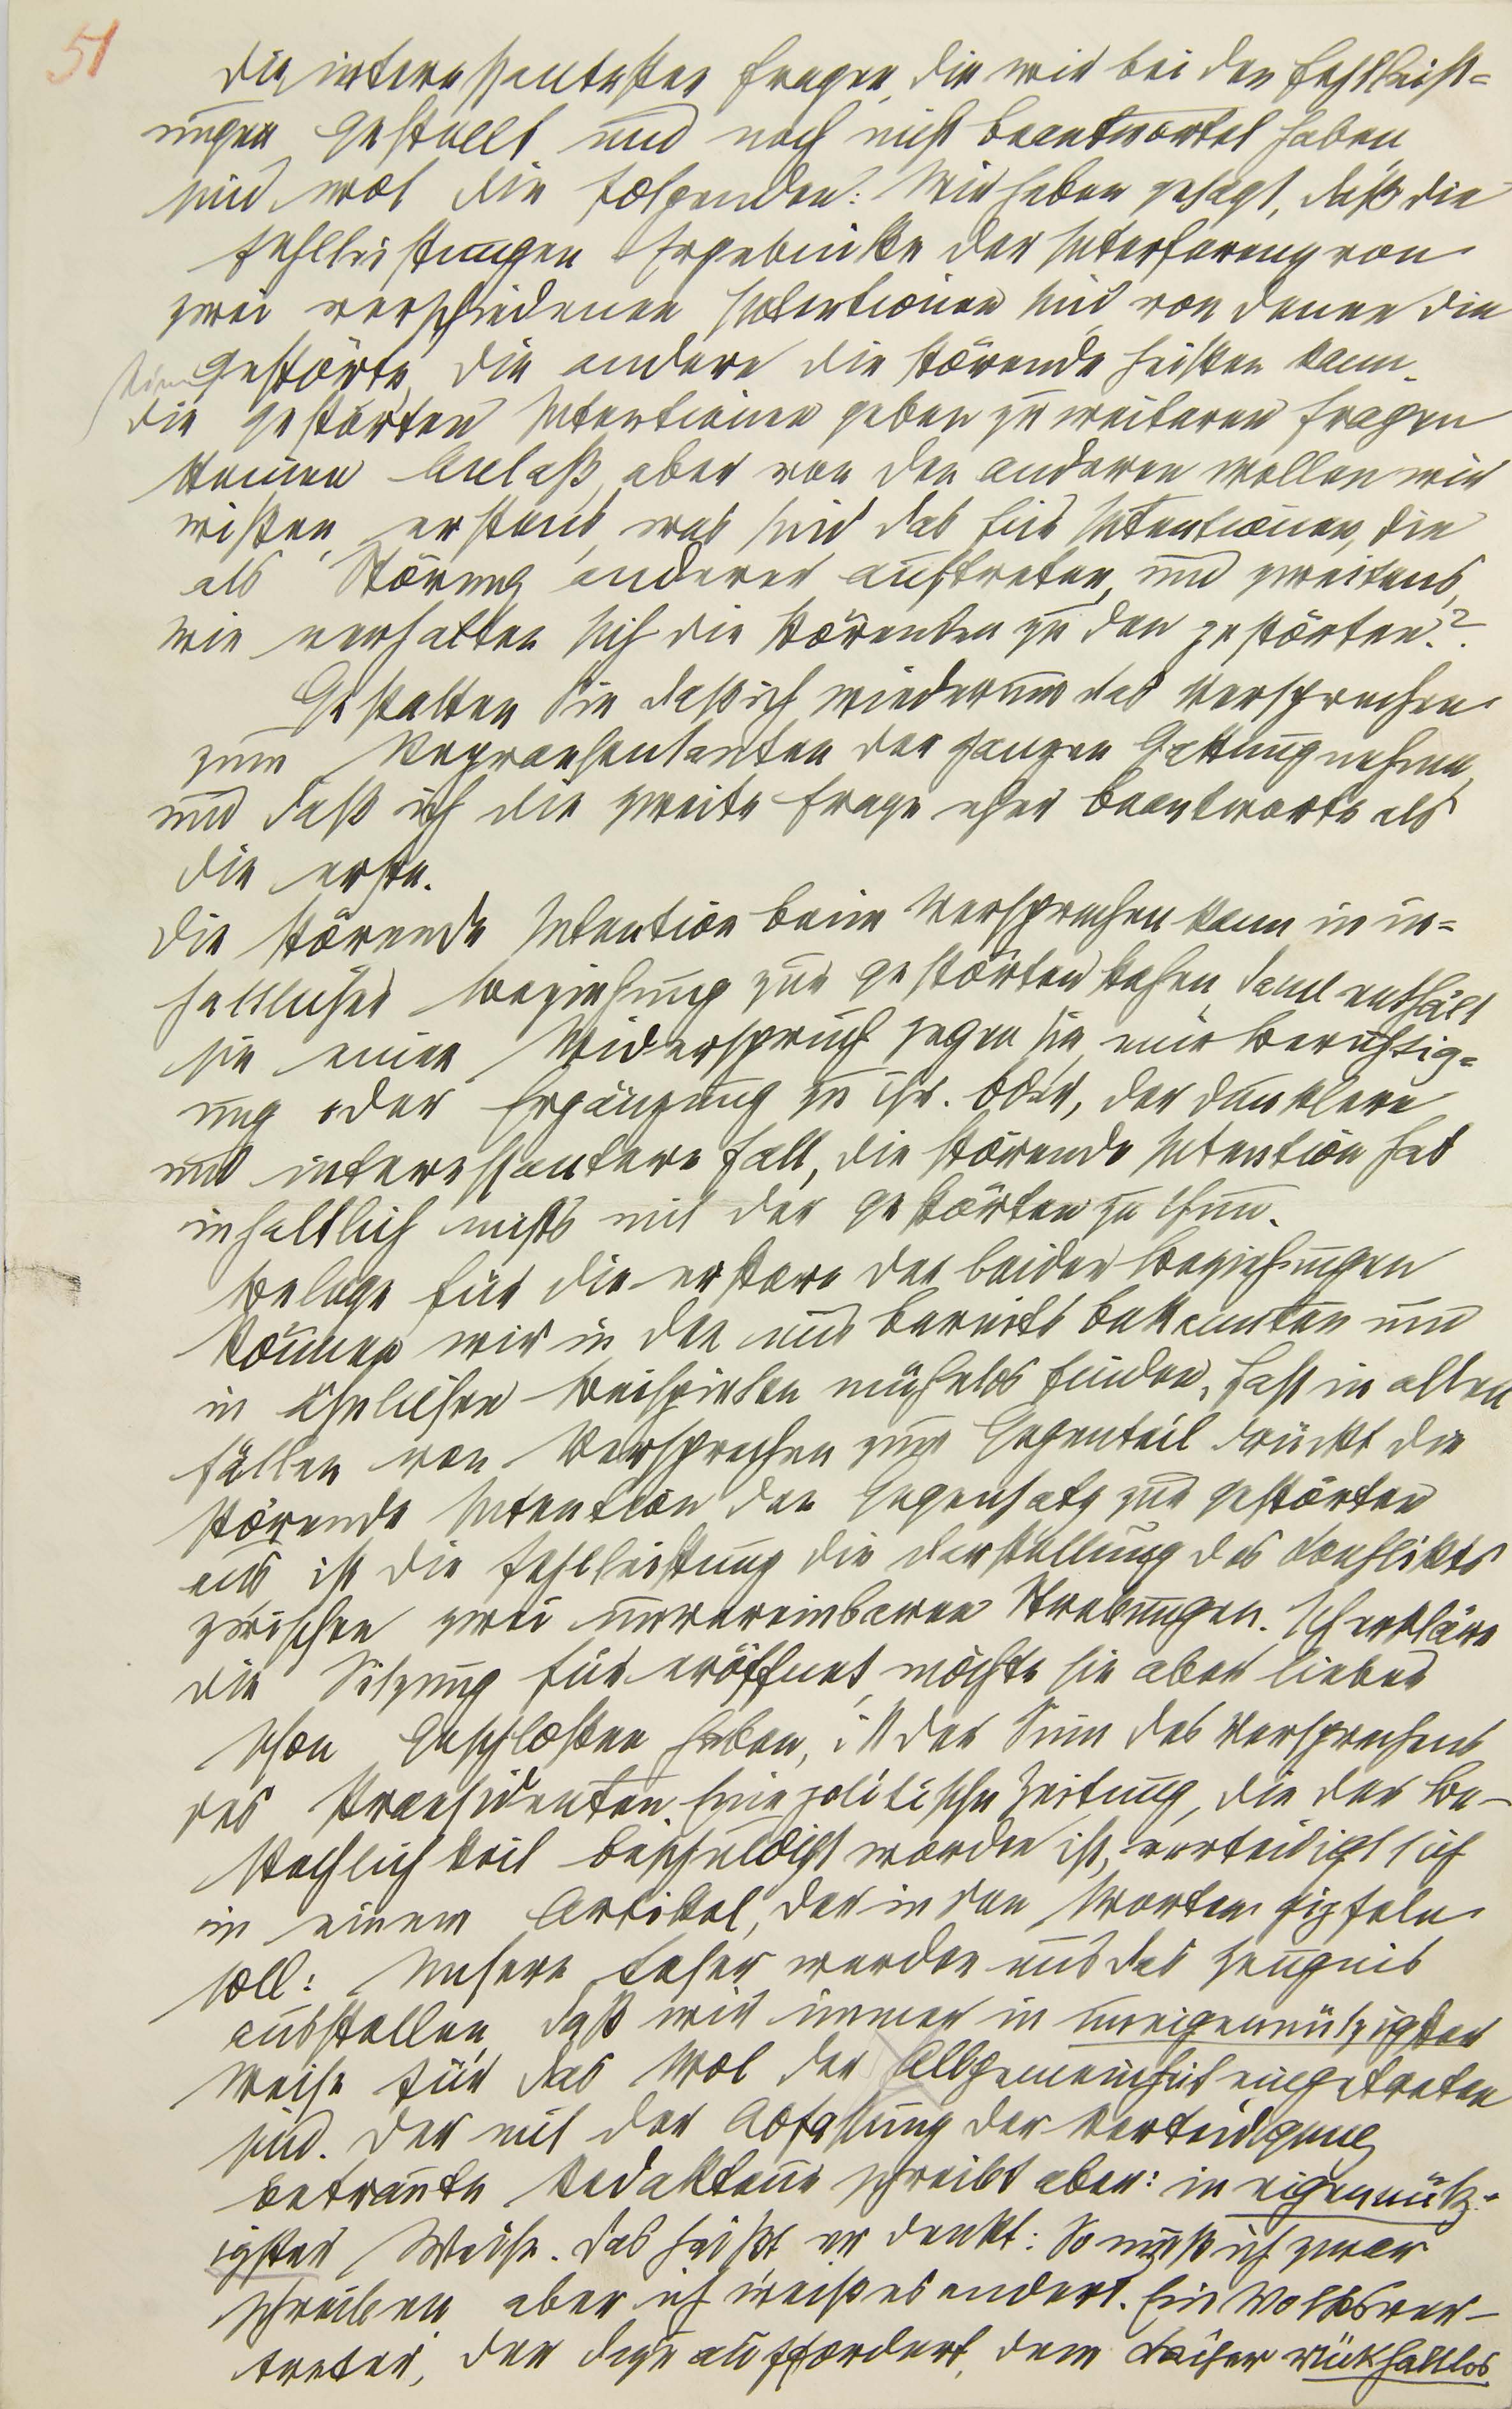 51
Die interessantesten Fragen, die wir bei den Fehlleist=
ungen gestellt und noch nicht beantwortet haben,
sind wol die folgenden: Wir haben gesagt, daß die
Fehlleistungen Ergebnisse der Interferenz von
zwei verschiedenen Intentionen sind, von denen die
eine gestörte, die andere die störende heißen kann.
Die gestörten Intentionen geben zu weiteren Fragen
keinen Anlaß, aber von den anderen wollen wir
wißen, erstens, was sind das für Intentionen, die
als Störung anderer auftreten, und zweitens,
wie verhalten sich die störenden zu den gestörten?
Gestatten Sie daß ich wiederum das Versprechen
zum Repraesentanten der ganzen Gattung nehme,
und daß ich die zweite Frage eher beantworte als
die erste.
Die störende Intention beim Versprechen kann in in=
haltlicher Beziehung zur gestörten stehen, dann enthält
sie einen Widerspruch gegen sie, eine Berichtig=
ung oder Ergänzung zu ihr. Oder, der dunklere
und interessantere Fall, die störende Intention hat
inhaltlich nichts mit der gestörten zu thun.
Belege für die erstere der beiden Beziehungen
können wir in den uns bereits bekannten und
in ähnlichen Beispielen mühelos finden. Fast in allen
Fällen von Versprechen zum Gegenteil drückt die
störende Intention den Gegensatz zur gestörten
aus, ist die Fehlleistung die Darstellung des Konflikts
zwischen zwei unvereinbaren Strebungen. Ich erkläre
die Sitzung für eröffnet, möchte sie aber lieber
schon geschloßen haben, ist der Sinn des Versprechens
des Praesidenten. Eine politische Zeitung, die der Be-
stechlichkeit beschuldigt worden ist, verteidigt sich
in einem Artikel, der in den Worten gipfeln
soll: Unsere Leser werden uns das Zeugnis
ausstellen, daß wir immer in uneigennützigster
Weise für das Wol der Allgemeinheit eingetreten
sind. Der mit der Abfaßung der Verteidigung
betraute Redakteur schreibt aber: in eigennütz-
igster Weise. Das heißt er denkt: So muß ich zwar
schreiben, aber ich weiß es anders. Ein Volksver-
treter, der dazu auffordert, dem Kaiser rückhaltlos